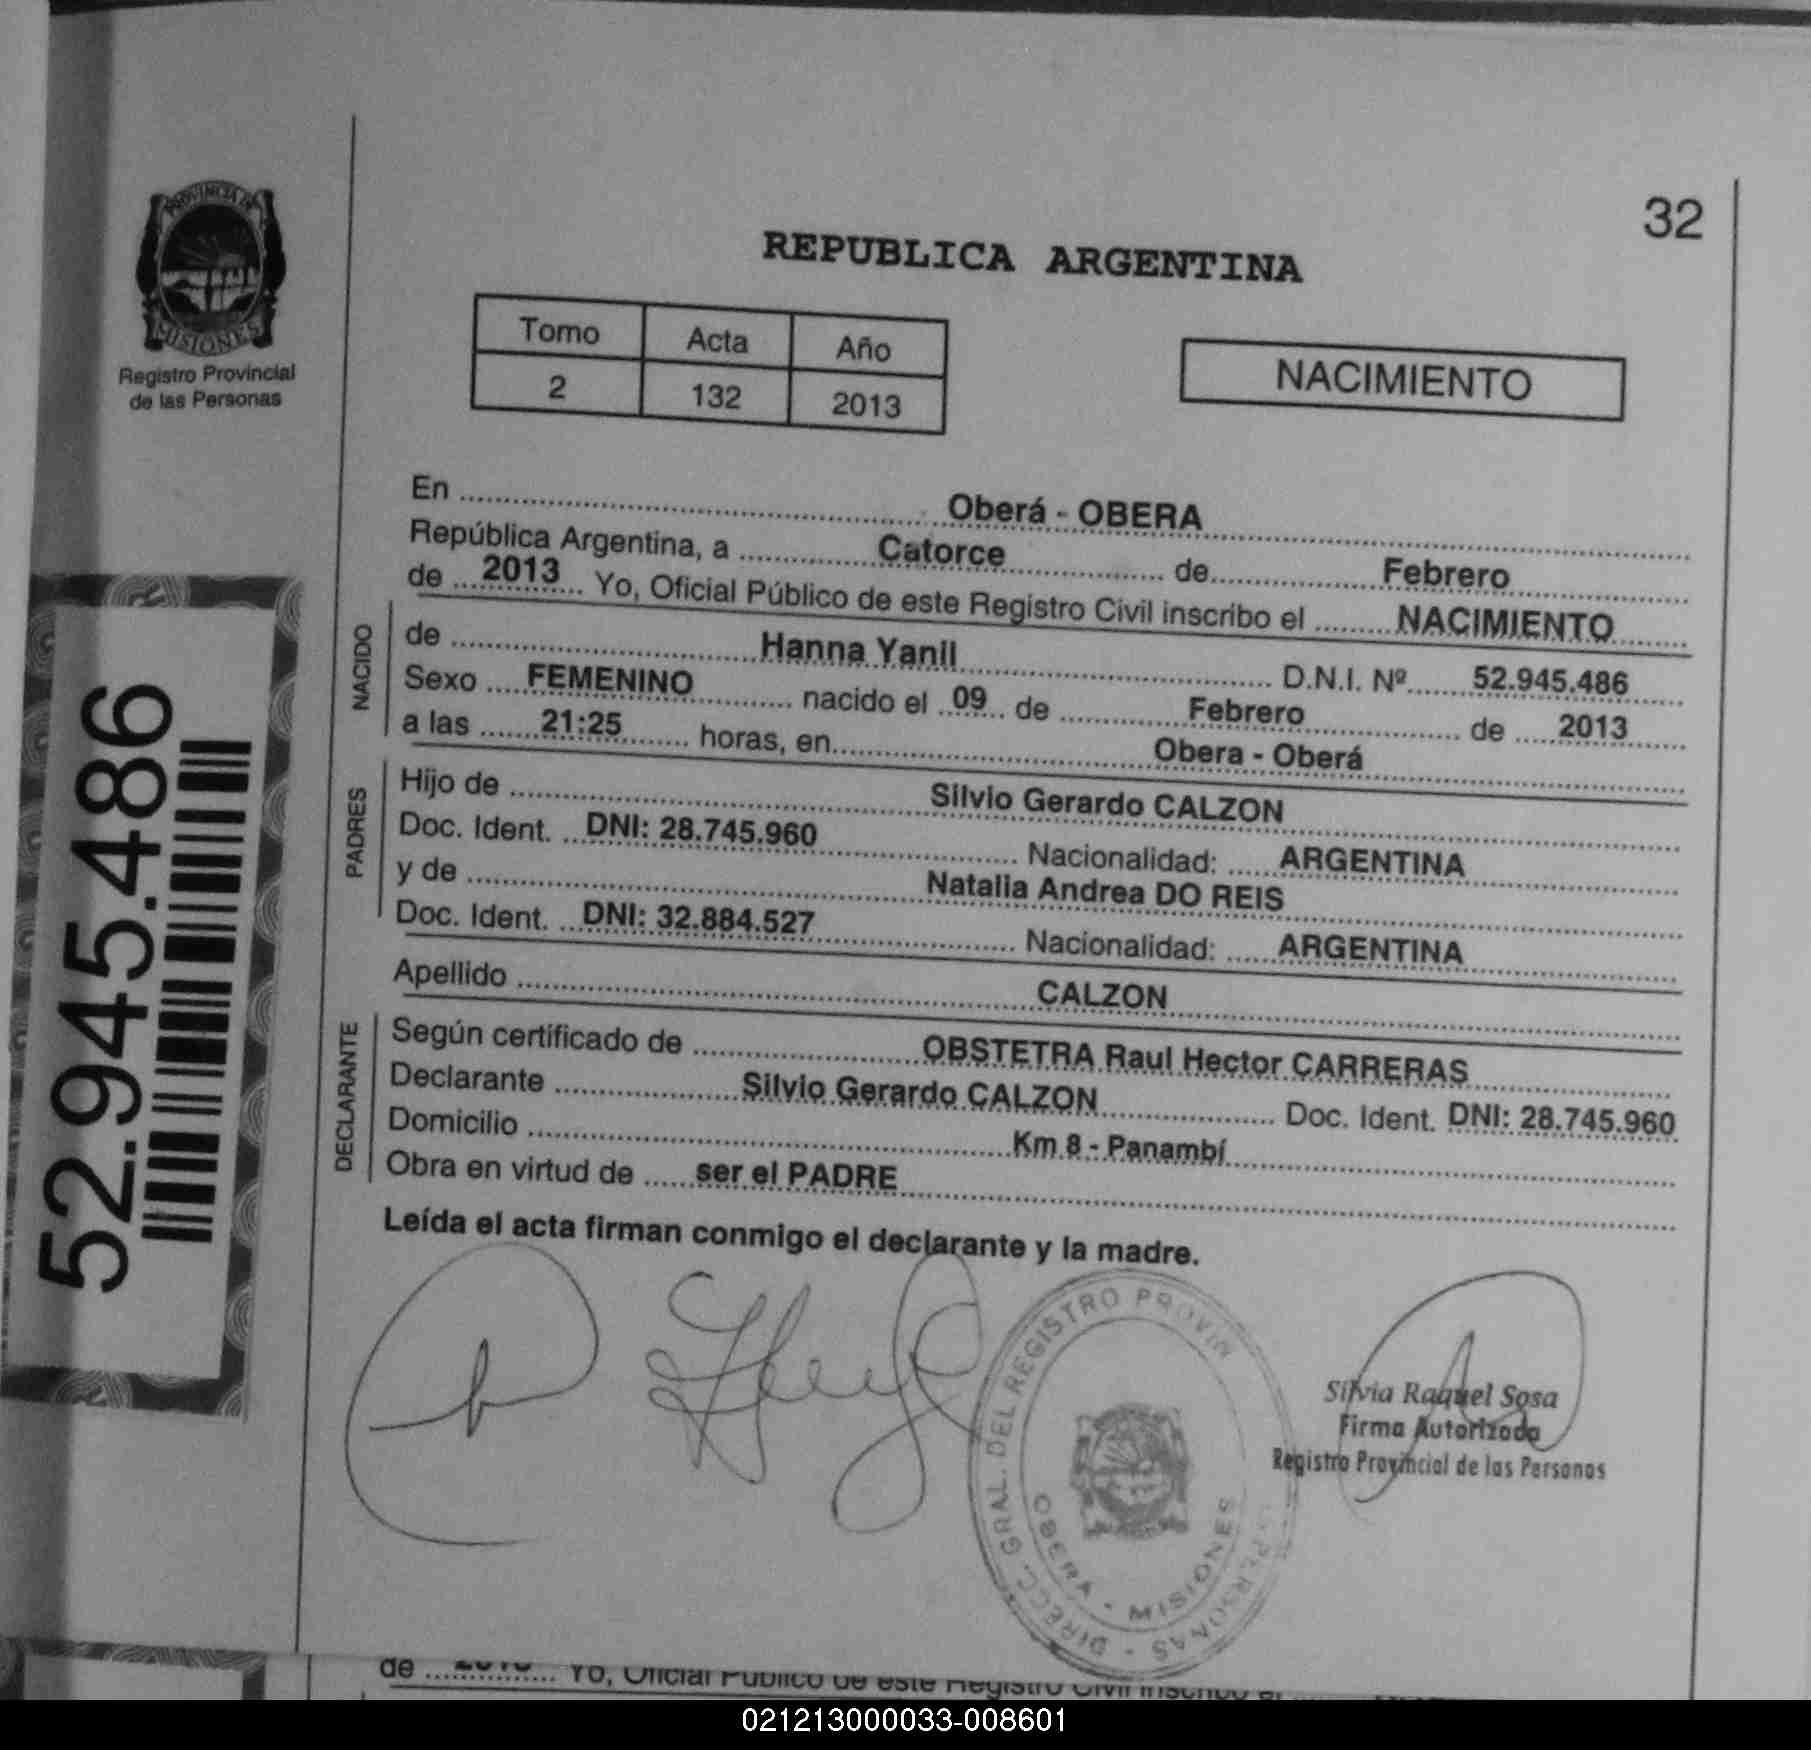 PROVINCIA DE
MISIONES
Registro Provincial
de las Personas
32
REPUBLICA ARGENTINA
Tomo Acta Año
2 132 2013
NACIMIENTO
En Oberá - OBERA
República Argentina, a Catorce de Febrero
de 2013 Yo, Oficial Público de este Registro Civil inscribo el NACIMIENTO
NACIDO
de Hanna Yanil D.N.I. Nº 52.945.486
Sexo FEMENINO nacido el 09 de Febrero de 2013
a las 21:25 horas, en Obera - Oberá
PADRES
Hijo de Silvio Gerardo CALZON
Doc. Ident. DNI: 28.745.960 Nacionalidad: ARGENTINA
y de Natalia Andrea DO REIS
Doc. Ident. DNI: 32.884.527 Nacionalidad: ARGENTINA
Apellido CALZON
DECLARANTE
Según certificado de OBSTETRA Raul Hector CARRERAS
Declarante Silvio Gerardo CALZON Doc. Ident. DNI: 28.745.960
Domicilio Km 8 - Panambí
Obra en virtud de ser el PADRE
Leída el acta firman conmigo el declarante y la madre.
52.945.486
DIRECC. GRAL. DEL REGISTRO PROVIN PERSONAS
OBERA - MISIONES
Silvia Raquel Sosa
Firma Autorizada
Registro Provincial de las Personas
de 2013 Yo, Oficial Público de este Registro Civil inscribo el
021213000033-008601